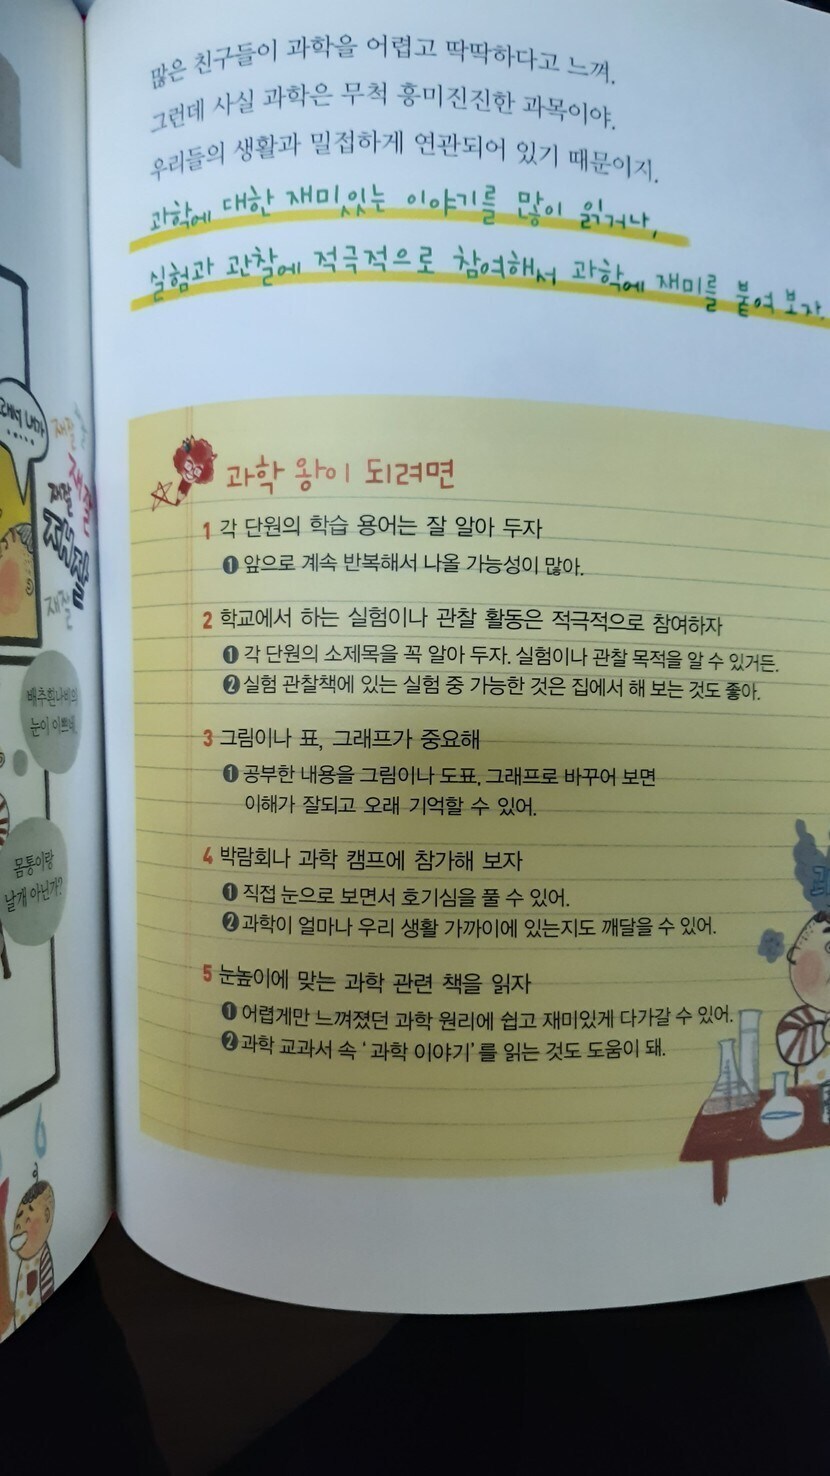 많은 친구들이 과학을 어렵고 딱딱하다고 느껴.
그런데 사실 과학은 무척 흥미진진한 과목이야.
우리들의 생활과 밀접하게 연관되어 있기 때문이지.
과학에 대한 재미있는 이야기를 많이 읽거나,
실험과 관찰에 적극적으로 참여해서 과학에 재미를 붙여 보자.
과학 왕이 되려면
1 각 단원의 학습 용어는 잘 알아 두자
❶ 앞으로 계속 반복해서 나올 가능성이 많아.
2 학교에서 하는 실험이나 관찰 활동은 적극적으로 참여하자
❶ 각 단원의 소제목을 꼭 알아 두자. 실험이나 관찰 목적을 알 수 있거든.
❷ 실험 관찰책에 있는 실험 중 가능한 것은 집에서 해 보는 것도 좋아.
3 그림이나 표, 그래프가 중요해
❶ 공부한 내용을 그림이나 도표, 그래프로 바꾸어 보면
이해가 잘되고 오래 기억할 수 있어.
4 박람회나 과학 캠프에 참가해 보자
❶ 직접 눈으로 보면서 호기심을 풀 수 있어.
❷ 과학이 얼마나 우리 생활 가까이에 있는지도 깨달을 수 있어.
5 눈높이에 맞는 과학 관련 책을 읽자
❶ 어렵게만 느껴졌던 과학 원리에 쉽고 재미있게 다가갈 수 있어.
❷ 과학 교과서 속 '과학 이야기'를 읽는 것도 도움이 돼.
내가
재잘
재잘
재잘
재잘
재잘
배추흰나비의
눈이 이쁘네.
몸통이랑
날개 아닌가?